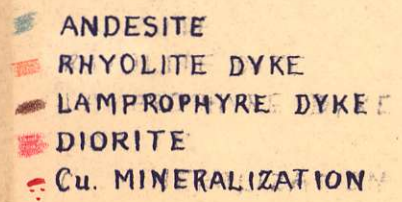 ANDESITE
RHYOLITE DYKE
LAMPROPHYRE DYKE
DIORITE
Cu. MINERALIZATION